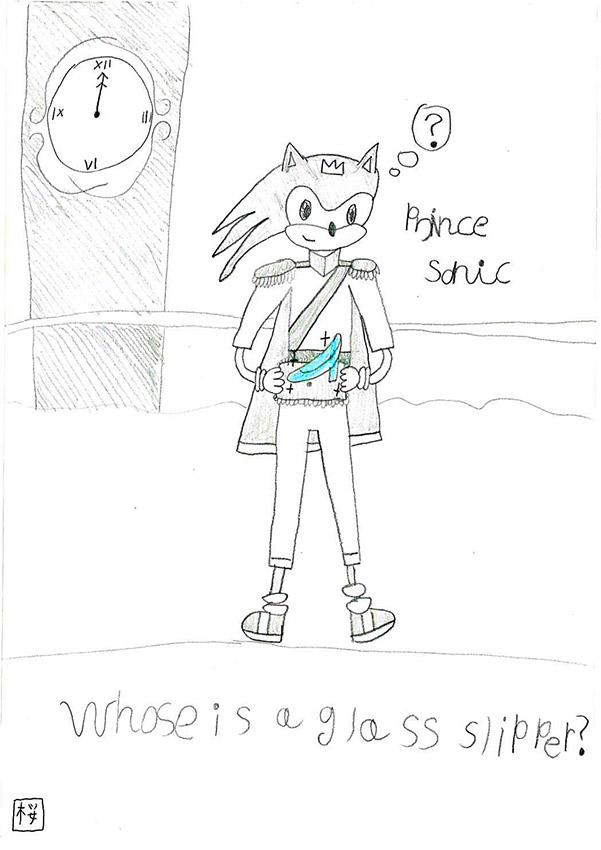 XII
IX
III
VI
?
Prince
Sonic
Whose is a glass slipper?
桜